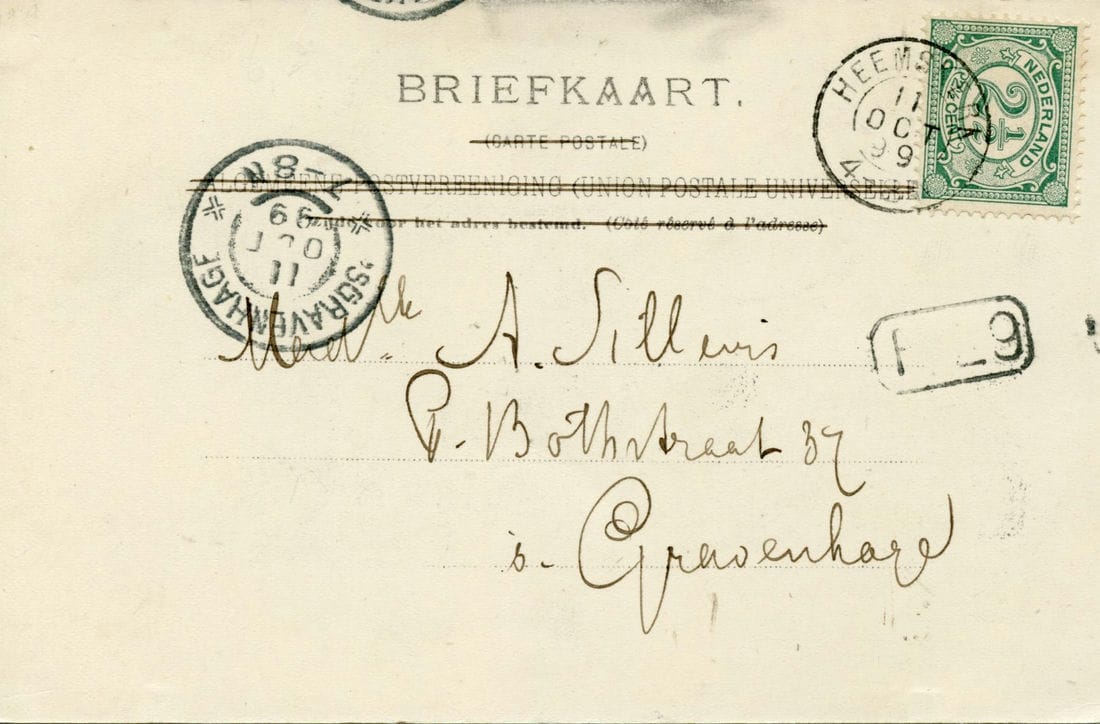 BRIEFKAART.
(CARTE POSTALE)
ALGEMEENE POSTVEREENIGING (UNION POSTALE UNIVERSELLE
Zijde voor het adres bestemd. (Côté réservé à l'adresse)
NEDERLAND
2½
(2½ CENT)
11
OCT
99
4
7-8N
99
OCT
11
'SGRAVENHAGE
Mejk A. Sillevis
P. Bothstraat 37
s. Gravenhage